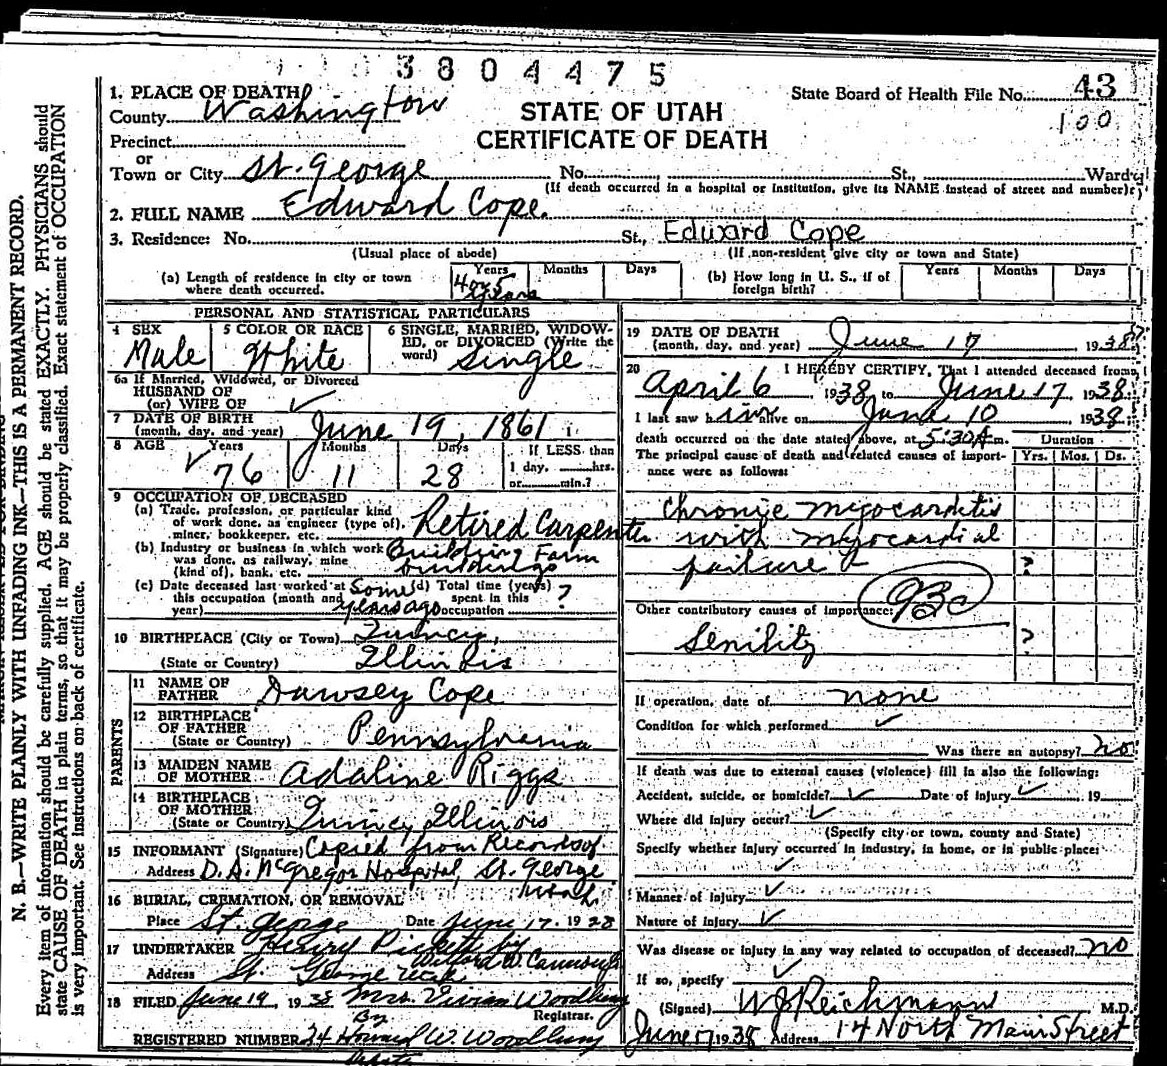 3804475
1. PLACE OF DEATH
County Washington
STATE OF UTAH
CERTIFICATE OF DEATH
State Board of Health File No. 43
100
Precinct
or
Town or City St. George No. St., Ward
(If death occurred in a hospital or institution, give its NAME instead of street and number)
2. FULL NAME Edward Cope.
3. Residence: No. St., Edward Cope
(Usual place of abode) (If non-resident give city or town and State)
(a) Length of residence in city or town where death occurred. Years Months Days
4 or 5 years
(b) How long in U. S., if of foreign birth? Years Months Days
PERSONAL AND STATISTICAL PARTICULARS
4 SEX Male
5 COLOR OR RACE White
6 SINGLE, MARRIED, WIDOWED, OR DIVORCED (Write the word) Single
6a If Married, Widowed, or Divorced
HUSBAND OF
(or) WIFE OF ✓
7 DATE OF BIRTH
(month, day, and year) June 19, 1861
8 AGE Years Months Days If LESS than
✓ 76 11 28 1 day, hrs.
or min.?
9 OCCUPATION OF DECEASED
(a) Trade, profession, or particular kind
of work done, as engineer (type of),
miner, bookkeeper, etc. Retired Carpenter
(b) Industry or business in which work
was done, as railway, mine
(kind of), bank, etc. Building Farm buildings
(c) Date deceased last worked at
this occupation (month and
year) Some years ago
(d) Total time (years)
spent in this
occupation ?
10 BIRTHPLACE (City or Town) Quincy,
(State or Country) Illinois
PARENTS
11 NAME OF
FATHER Dawsey Cope
12 BIRTHPLACE
OF FATHER
(State or Country) Pennsylvania
13 MAIDEN NAME
OF MOTHER Adaline Riggs
14 BIRTHPLACE
OF MOTHER
(State or Country) Quincy Illinois
15 INFORMANT (Signature) Copied from Records of
Address D. A. McGregor Hospital, St. George Utah
16 BURIAL, CREMATION, OR REMOVAL
Place St. George Date June 17. 1938
17 UNDERTAKER Henry Pickett by
Address St. George Utah
18 FILED June 19, 1938 Mrs. Vivian Woodbury
By Registrar.
REGISTERED NUMBER 34 Howard W. Woodbury
19 DATE OF DEATH
(month, day, and year) June 17 1938
20 I HEREBY CERTIFY, That I attended deceased from
April 6 1938 to June 17, 1938
I last saw him alive on June 10 1938
death occurred on the date stated above, at 5:30 A.m.
The principal cause of death and related causes of importance were as follows:
Duration
Yrs. Mos. Ds.
Chronic myocarditis
with myocardial
failure ?
93c
Other contributory causes of importance:
Senility ?
If operation, date of none
Condition for which performed ✓
Was there an autopsy? no
If death was due to external causes (violence) fill in also the following:
Accident, suicide, or homicide? ✓ Date of Injury ✓ 19
Where did injury occur? ✓
(Specify city or town, county and State)
Specify whether injury occurred in industry, in home, or in public place:
✓
Manner of Injury ✓
Nature of Injury ✓
Was disease or injury in any way related to occupation of deceased? no
If so, specify ✓
(Signed) W J Reichmann M.D.
June 17 1938 Address 14 North Main Street
N. B.—WRITE PLAINLY WITH UNFADING INK—THIS IS A PERMANENT RECORD.
Every item of information should be carefully supplied. AGE should be stated EXACTLY. PHYSICIANS should
state CAUSE OF DEATH in plain terms, so that it may be properly classified. Exact statement of OCCUPATION
is very important. See instructions on back of certificate.